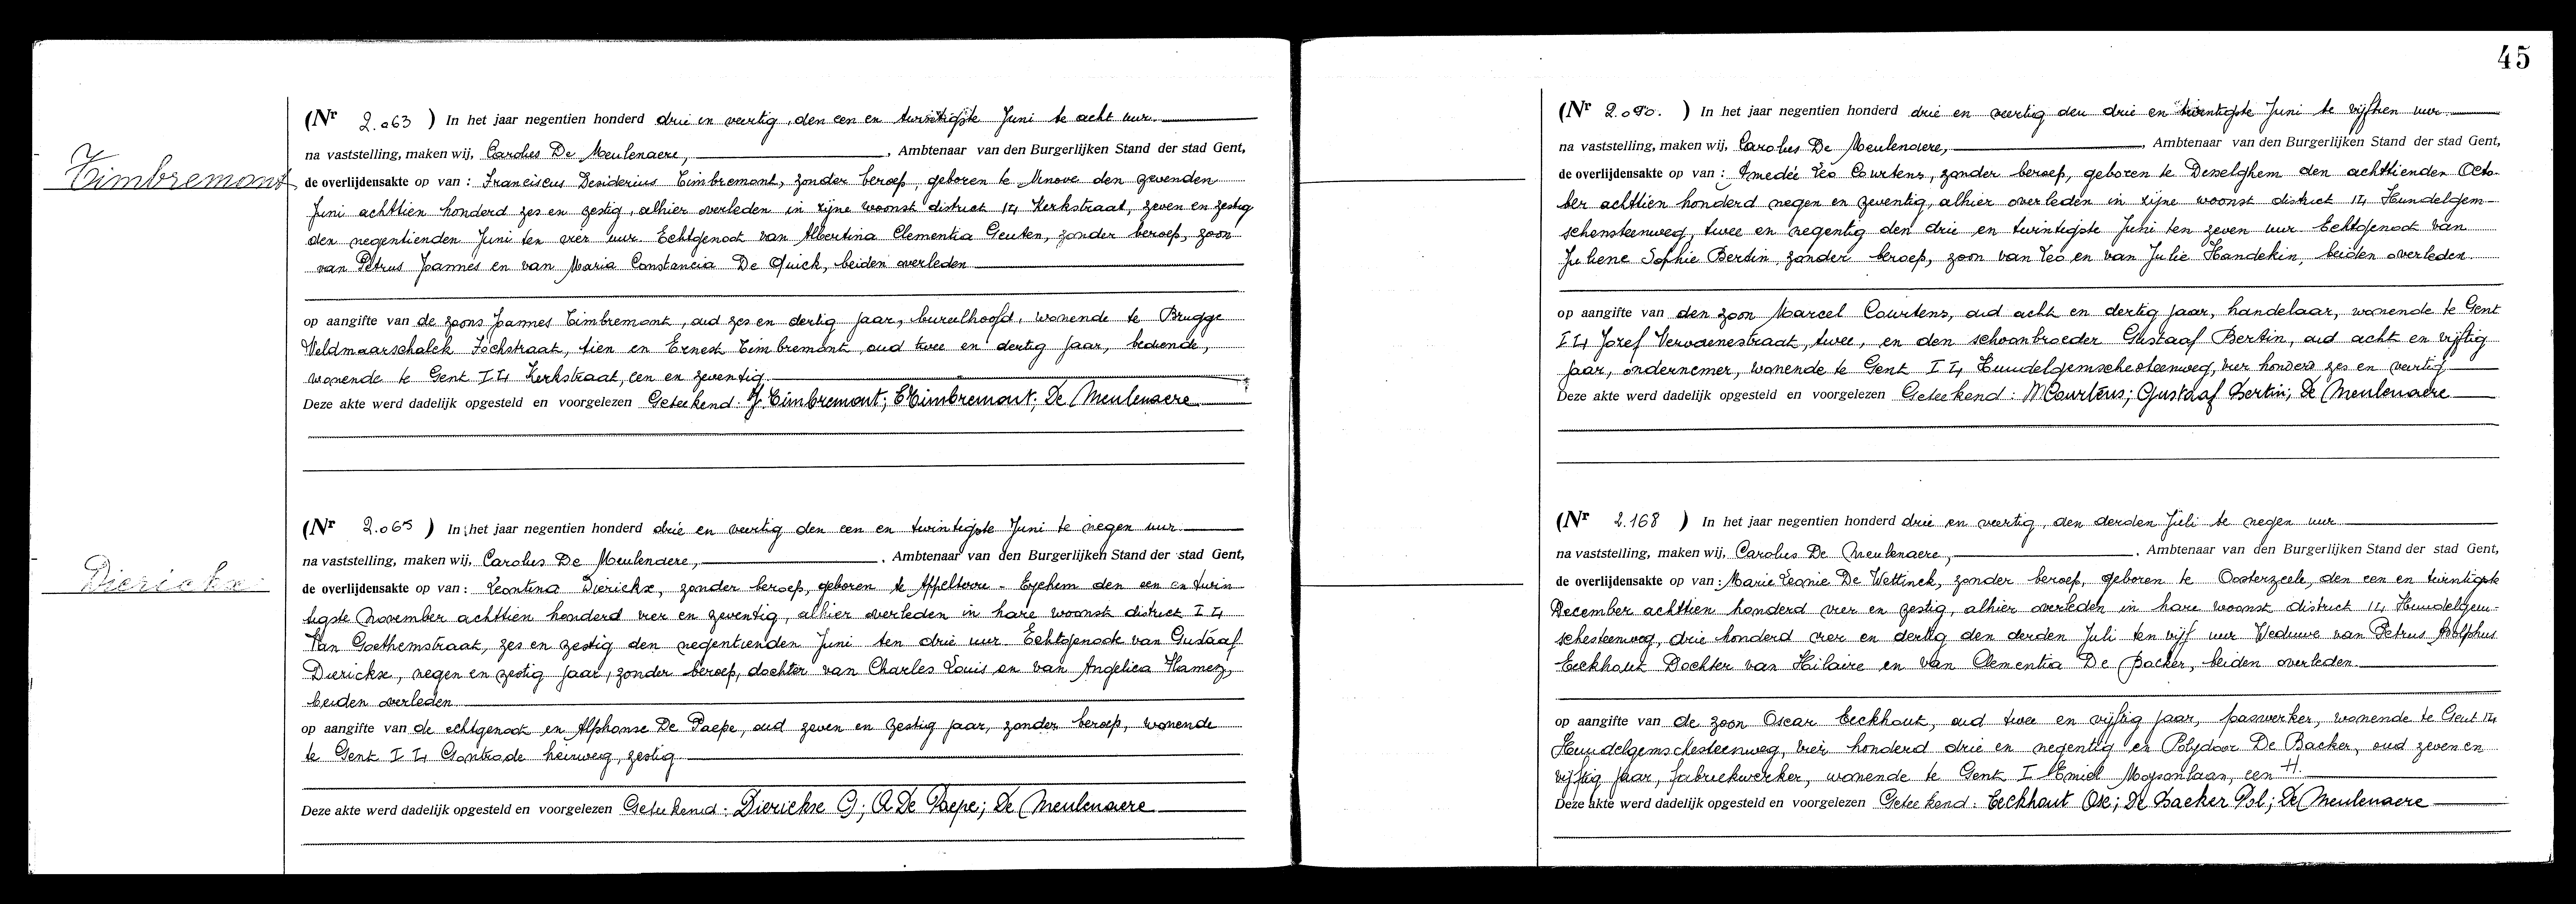 45
Timbremont
(Nr 2.063 ) In het jaar negentien honderd drie en veertig, den een en twintigste Juni te acht uur.
na vaststelling, maken wij, Carolus De Meulenaere, , Ambtenaar van den Burgerlijken Stand der stad Gent,
de overlijdensakte op van : Franciscus Desiderius Timbremont, zonder beroep, geboren te Ninove den zevenden
Juni achttien honderd zes en zestig, alhier overleden in zijne woonst district I4 Kerkstraat, zeven en zestig
den negentienden Juni ten vier uur. Echtgenoot van Albertina Clementia Geuten, zonder beroep, zoon
van Petrus Joannes en van Maria Constancia De Quick, beiden overleden
op aangifte van de zoons Joannes Timbremont, oud zes en dertig jaar, bureelhoofd, wonende te Brugge
Veldmaarschalck Fochstraat, tien en Ernest Timbremont, oud twee en dertig jaar, bediende,
wonende te Gent I4 Kerkstraat, een en zeventig.
Deze akte werd dadelijk opgesteld en voorgelezen Geteekend: J. Timbremont; E Timbremont; De Meulenaere
Dierickx
(Nr 2.065 ) In het jaar negentien honderd drie en veertig den een en twintigste Juni te negen uur.
na vaststelling, maken wij, Carolus De Meulenaere, , Ambtenaar van den Burgerlijken Stand der stad Gent,
de overlijdensakte op van : Leontina Dierickx, zonder beroep, geboren te Appelterre - Eychem den een en twin
tigste November achttien honderd vier en zeventig, alhier overleden in hare woonst district I4
Van Goethemstraat, zes en zestig den negentienden Juni ten drie uur. Echtgenoote van Gustaaf
Dierickx, negen en zestig jaar, zonder beroep, dochter van Charles Louis en van Angelica Hametz,
beiden overleden
op aangifte van de echtgenoot en Alphonse De Paepe, oud zeven en zestig jaar, zonder beroep, wonende
te Gent I4 Gontrode heirweg, zestig
Deze akte werd dadelijk opgesteld en voorgelezen Geteekend: Dierickx G; A De Paepe; De Meulenaere
(Nr 2.090. ) In het jaar negentien honderd drie en veertig den drie en twintigste Juni te vijftien uur
na vaststelling, maken wij, Carolus De Meulenaere, , Ambtenaar van den Burgerlijken Stand der stad Gent,
de overlijdensakte op van : Amedée Léo Courtens, zonder beroep, geboren te Desselghem den achttienden Octo-
ber achttien honderd negen en zeventig, alhier overleden in zijne woonst district I4 Hundelgem-
schensteenweg, twee en negentig den drie en twintigste Juni ten zeven uur Echtgenoot van
Juliene Sophie Bertin, zonder beroep, zoon van Leo en van Julie Handekin, beiden overleden.
op aangifte van den zoon Marcel Courtens, oud acht en dertig jaar, handelaar, wonende te Gent
I4 Jozef Vervaenestraat, twee, en den schoonbroeder Gustaaf Bertin, oud acht en vijftig
jaar, ondernemer, wonende te Gent I4 Hundelgemschesteenweg, vier honderd zes en veertig
Deze akte werd dadelijk opgesteld en voorgelezen Geteekend: M Courtens; Gustaaf Bertin; De Meulenaere
(Nr 2.168 ) In het jaar negentien honderd drie en veertig, den derden Juli te negen uur
na vaststelling, maken wij, Carolus De Meulenaere, , Ambtenaar van den Burgerlijken Stand der stad Gent,
de overlijdensakte op van : Marie Leonie De Wettinck, zonder beroep, geboren te Oosterzeele, den een en twintigste
December achttien honderd vier en zestig, alhier overleden in hare woonst district I4 Hundelgem-
schesteenweg, drie honderd vier en dertig den derden Juli ten vijf uur Weduwe van Petrus Adolphus
Eeckhout Dochter van Hilaire en van Clementia De Backer, beiden overleden.
op aangifte van de zoon Oscar Eeckhout, oud twee en vijftig jaar, paswerker, wonende te Gent I4
Hundelgemschesteenweg, vier honderd drie en negentig en Polydoor De Backer, oud zeven en
vijftig jaar, fabriekwerker, wonende te Gent I Emiel Moysonlaan, een H.
Deze akte werd dadelijk opgesteld en voorgelezen Geteekend: Eeckhout Osc; De Backer Pol; De Meulenaere